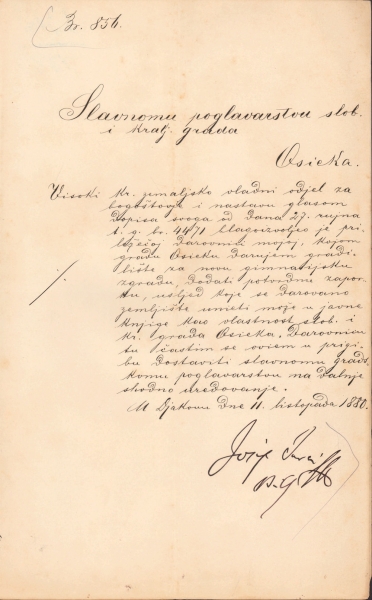 Br. 856.
Slavnomu poglavarstvu slob.
i kralj. grada
Osieka.
Visoki kr. zemaljsko vladni odjel za
bogoštovje i nastavu glasom
dopisa svoga od dana 27. rujna
t. g. br. 4471 blagoizvoljeo je pri
ležećoj darovnici mojoj, kojom
gradu Osieku darujem gradi-
lište za novu gimnazijsku
zgradu, dodati potvrdnu zapor-
ku, usljed koje se darovano
zemljište unieti može u javne
knjige kao vlastnost slob. i
kr. grada Osieka. Darovnicu
tu častim se oviem u prigi-
bu dostaviti slavnomu grads-
komu poglavarstvu na daljnje
shodno uredovanje.
U Djakovu dne 11. listopada 1880.
Josip Juraj